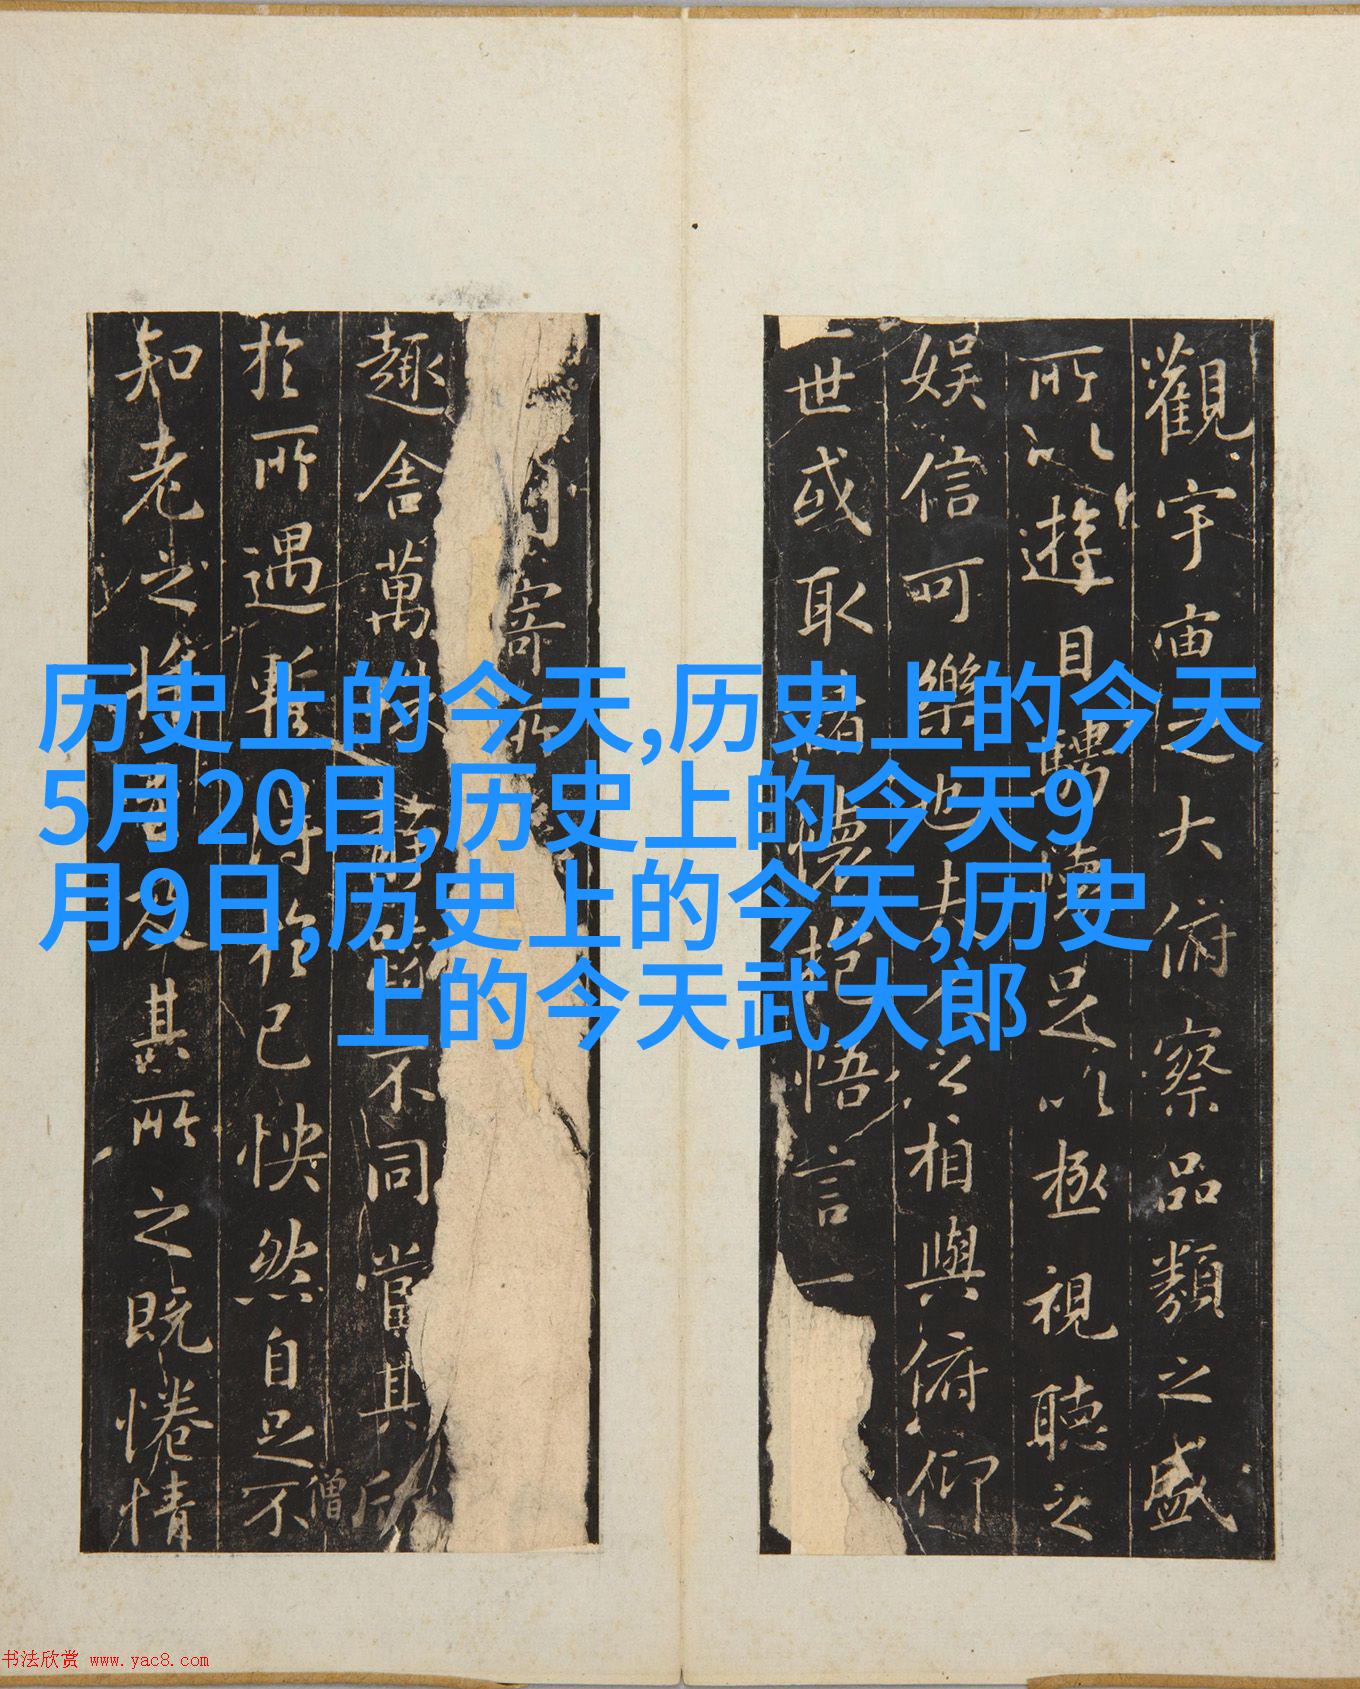 历史上的今天,历史上的今天
5月20日,历史上的今天9
月9日,历史上的今天,历史
上的今天武大郎
觀宇宙之大俯察品類之盛
所以遊目騁懷足以極視聽之
娱信可樂也夫人之相與俯仰
一世或取諸懷抱悟言一
寄所
趣舍萬殊靜躁不同當其欣
僧
於所遇暫得於己怏然自足不
知老之將至及其所之既惓情
书法欣赏 www.yac8.com